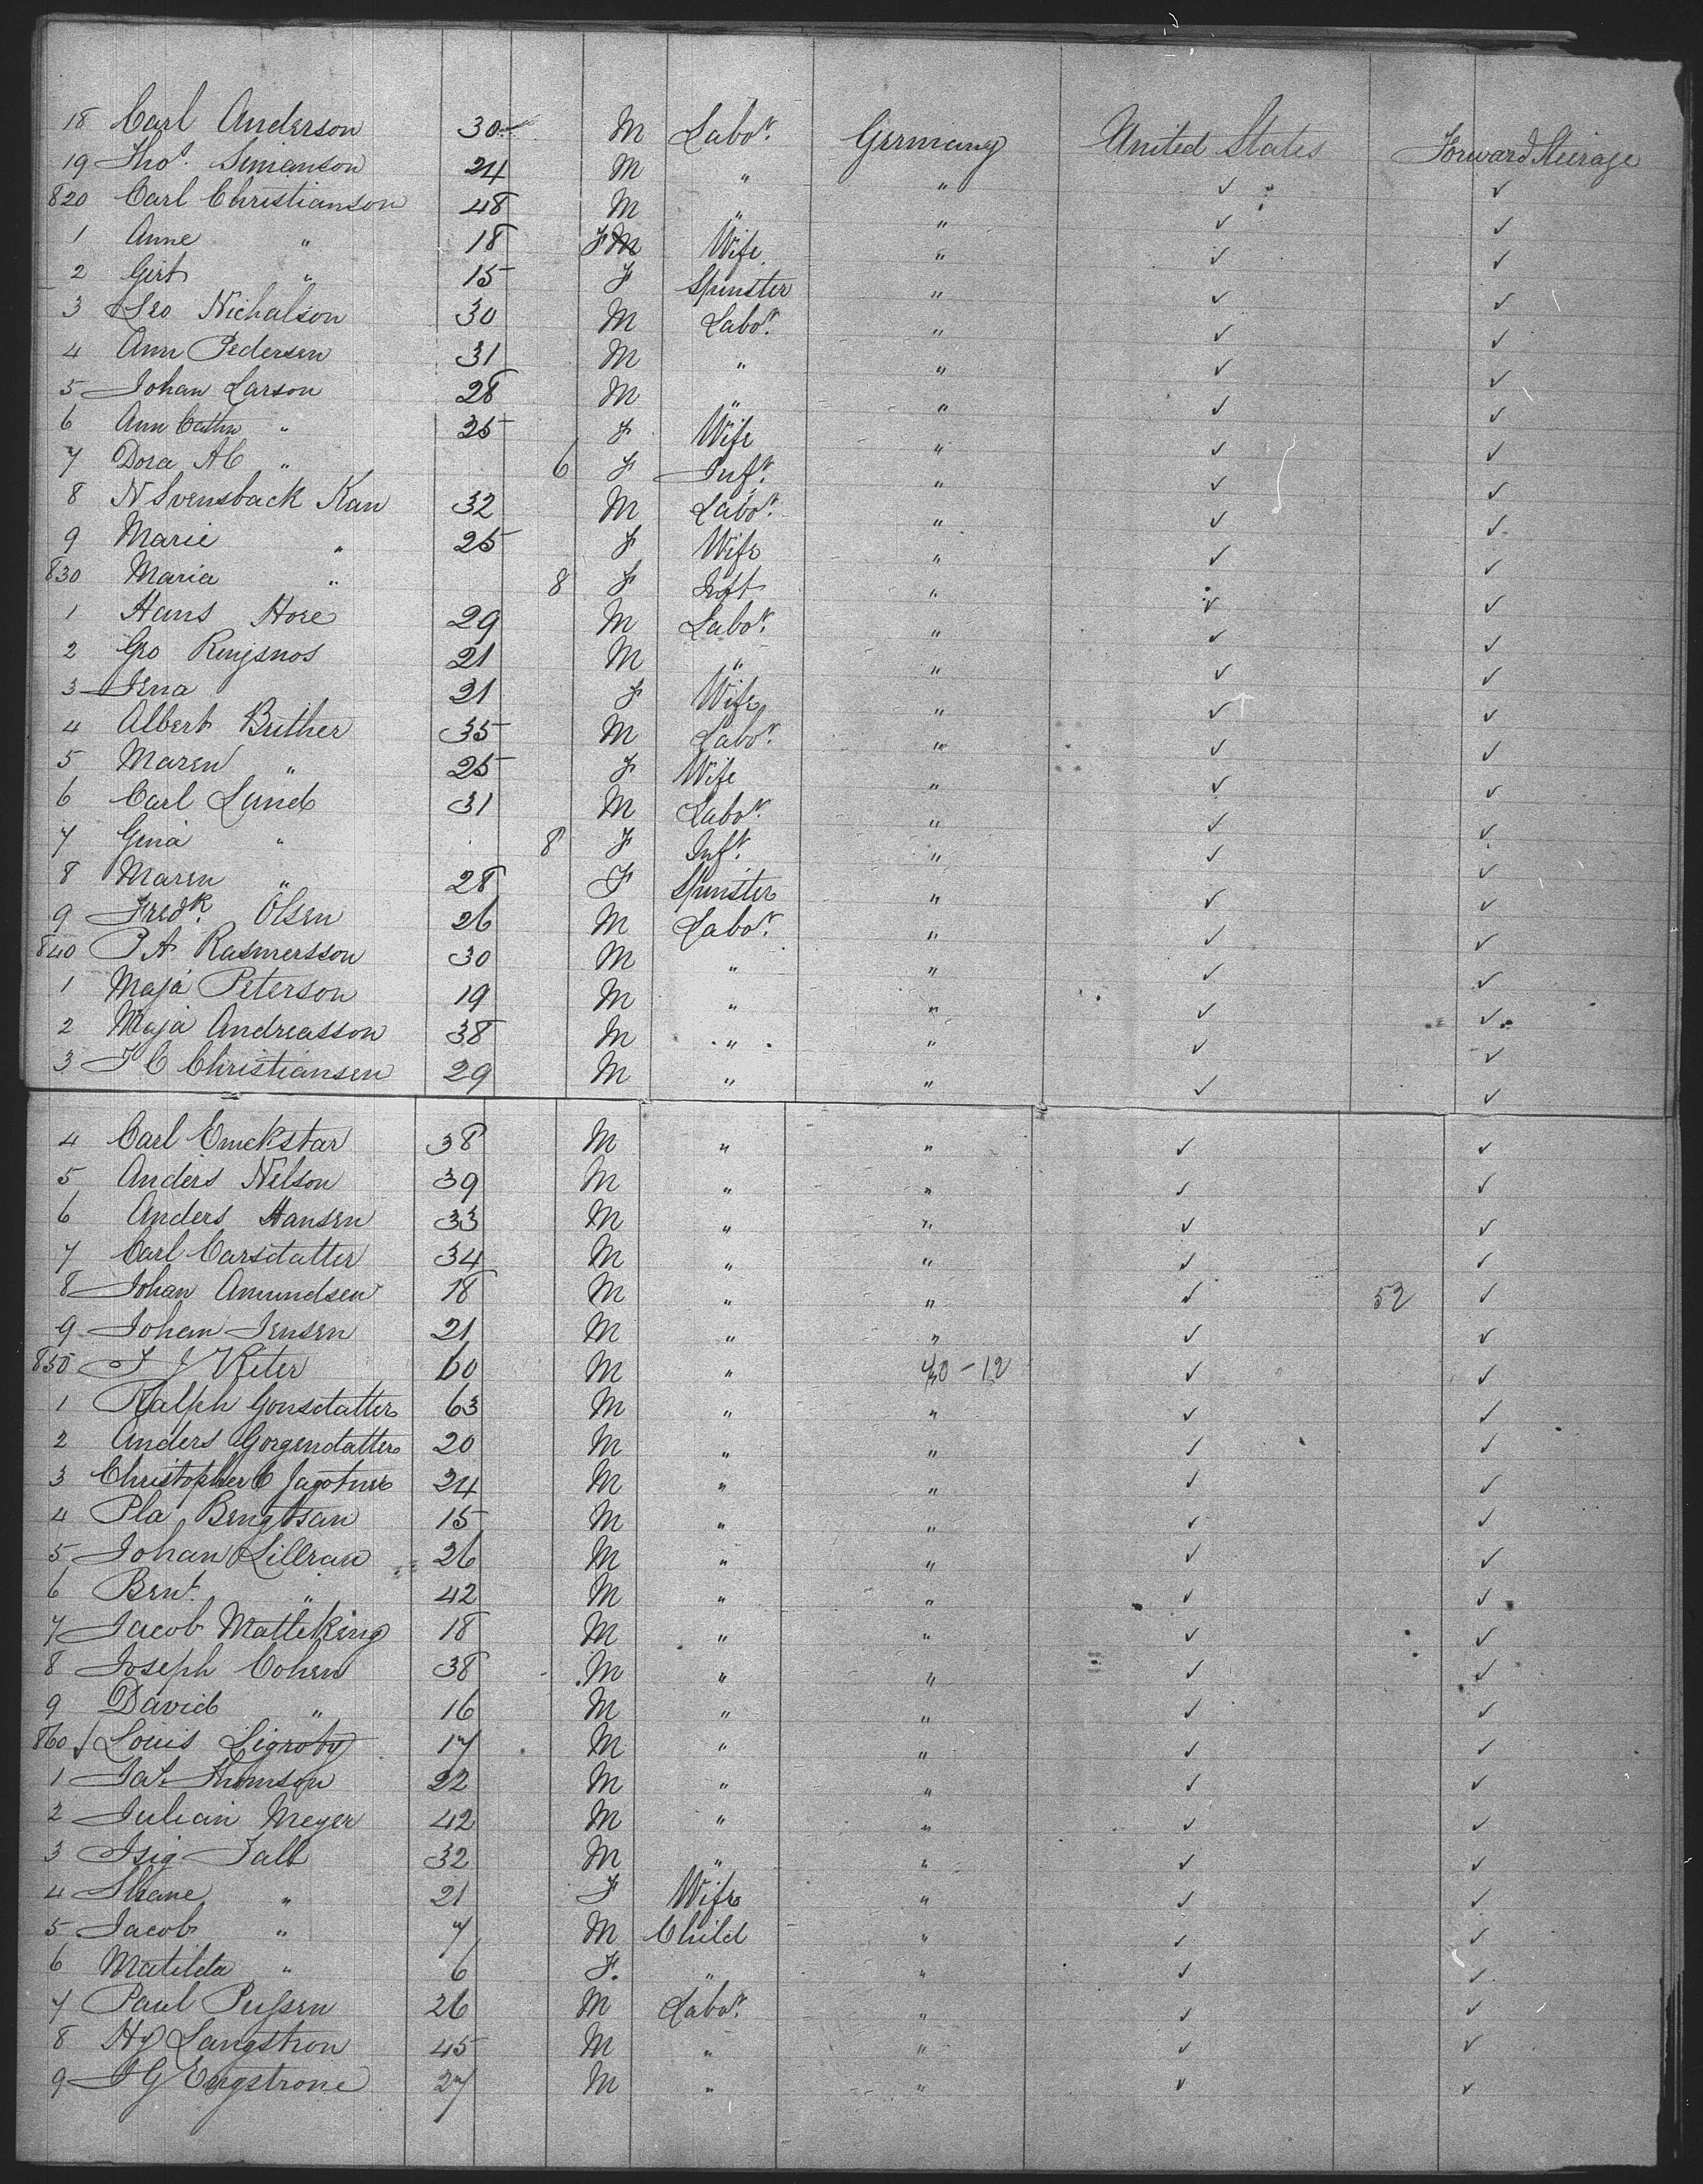 18 Carl Anderson 30 M Labor. Germany United States Forward Steirage
19 Thos. Simanson 24 M " " ✓ ✓
820 Carl Christianson 48 M " " ✓ ✓
1 Anne " 18 F Wife " ✓ ✓
2 Girt " 15 F Spinster " ✓ ✓
3 Leo Nichalson 30 M Labor. " ✓ ✓
4 Ann Pedersen 31 M " " ✓ ✓
5 Johan Larson 28 M " " ✓ ✓
6 Ann Cathn " 25 F Wife " ✓ ✓
7 Dora AC " 6 F Inft. " ✓ ✓
8 N Svensback Kan 32 M Labor. " ✓ ✓
9 Marie " 25 F Wife " ✓ ✓
830 Maria " 8 F Inft " ✓ ✓
1 Hans Hore 29 M Labor. " ✓ ✓
2 Geo 21 M " " ✓ ✓
3 Jena 21 F Wife " ✓ ✓
4 Albert Buther 35 M Labor. " ✓ ✓
5 Maren " 25 F Wife " ✓ ✓
6 Carl Lund 31 M Labor. " ✓ ✓
7 Gina " 8 F Inft. " ✓ ✓
8 Maren " 28 F Spinster " ✓ ✓
9 Fredk. Olsen 26 M Labor. " ✓ ✓
840 P A Rasmersson 30 M " " ✓ ✓
1 Maja Peterson 19 M " " ✓ ✓
2 Maja Andreasson 38 M " " ✓ ✓
3 J C Christiansen 29 M " " ✓ ✓
4 Carl 38 M " " ✓ ✓
5 Anders Nelson 39 M " " ✓ ✓
6 Anders Hansen 33 M " " ✓ ✓
7 Carl Carsdatter 34 M " " ✓ ✓
8 Johan Amundsen 18 M " " ✓ 52 ✓
9 Johan Jensen 21 M " " ✓ ✓
850 60 M " ✓ ✓
1 Ralph Gonsdatter 63 M " " ✓ ✓
2 Anders Gorgendatter 20 M " " ✓ ✓
3 Christopher C 24 M " " ✓ ✓
4 Pla Bengtsan 15 M " " ✓ ✓
5 Johan Lillran 26 M " " ✓ ✓
6 Bent " 42 M " " ✓ ✓
7 Jacob Matteking 18 M " " ✓ ✓
8 Joseph Cohen 38 M " " ✓ ✓
9 David " 16 M " " ✓ ✓
860 Louis Ligroby 17 M " " ✓ ✓
1 Jas. Thomson 22 M " " ✓ ✓
2 Julian Meyer 42 M " " ✓ ✓
3 Isig Falb 32 M " " ✓ ✓
4 Shane " 21 F Wife " ✓ ✓
5 Jacob " 7 M Child " ✓ ✓
6 Matilda " 6 F. " " ✓ ✓
7 Paul 26 M Labor. " ✓ ✓
8 Hy Langstron 45 M " " ✓ ✓
9 J G Engstrone 27 M " " ✓ ✓